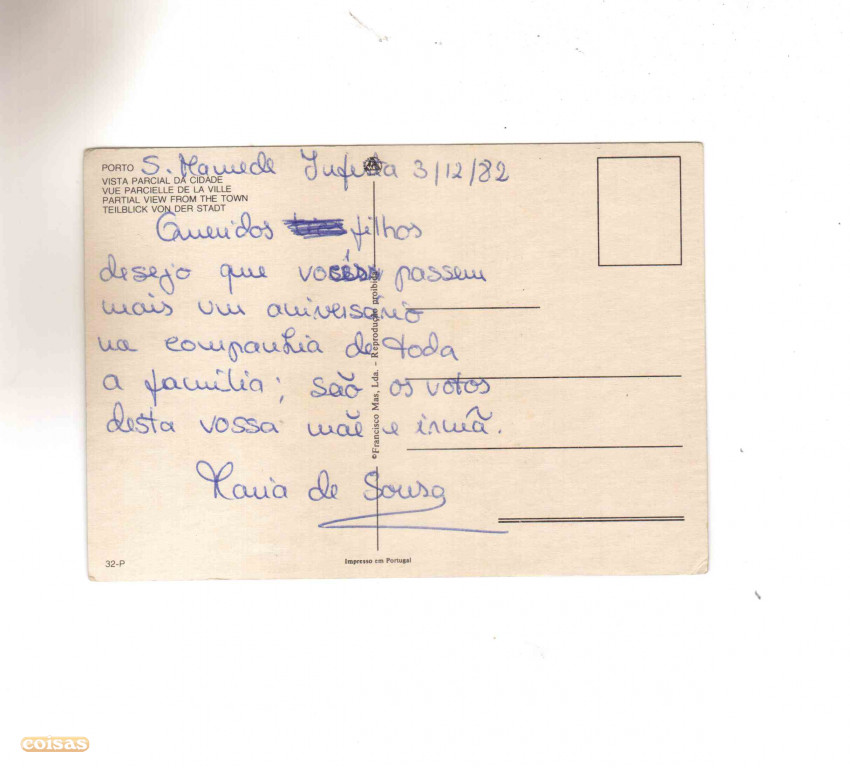 PORTO S. Mamede Infesta 3/12/82
VISTA PARCIAL DA CIDADE
VUE PARCIELLE DE LA VILLE
PARTIAL VIEW FROM THE TOWN
TEILBLICK VON DER STADT
Queridos filhos
desejo que passem
mais um aniversário
na companhia de toda
a família; são os votos
desta vossa mãe e irmã.
Maria de Sousa
©Francisco Mas, Lda. - Reprodução proibida
32-P
Impresso em Portugal
coisas